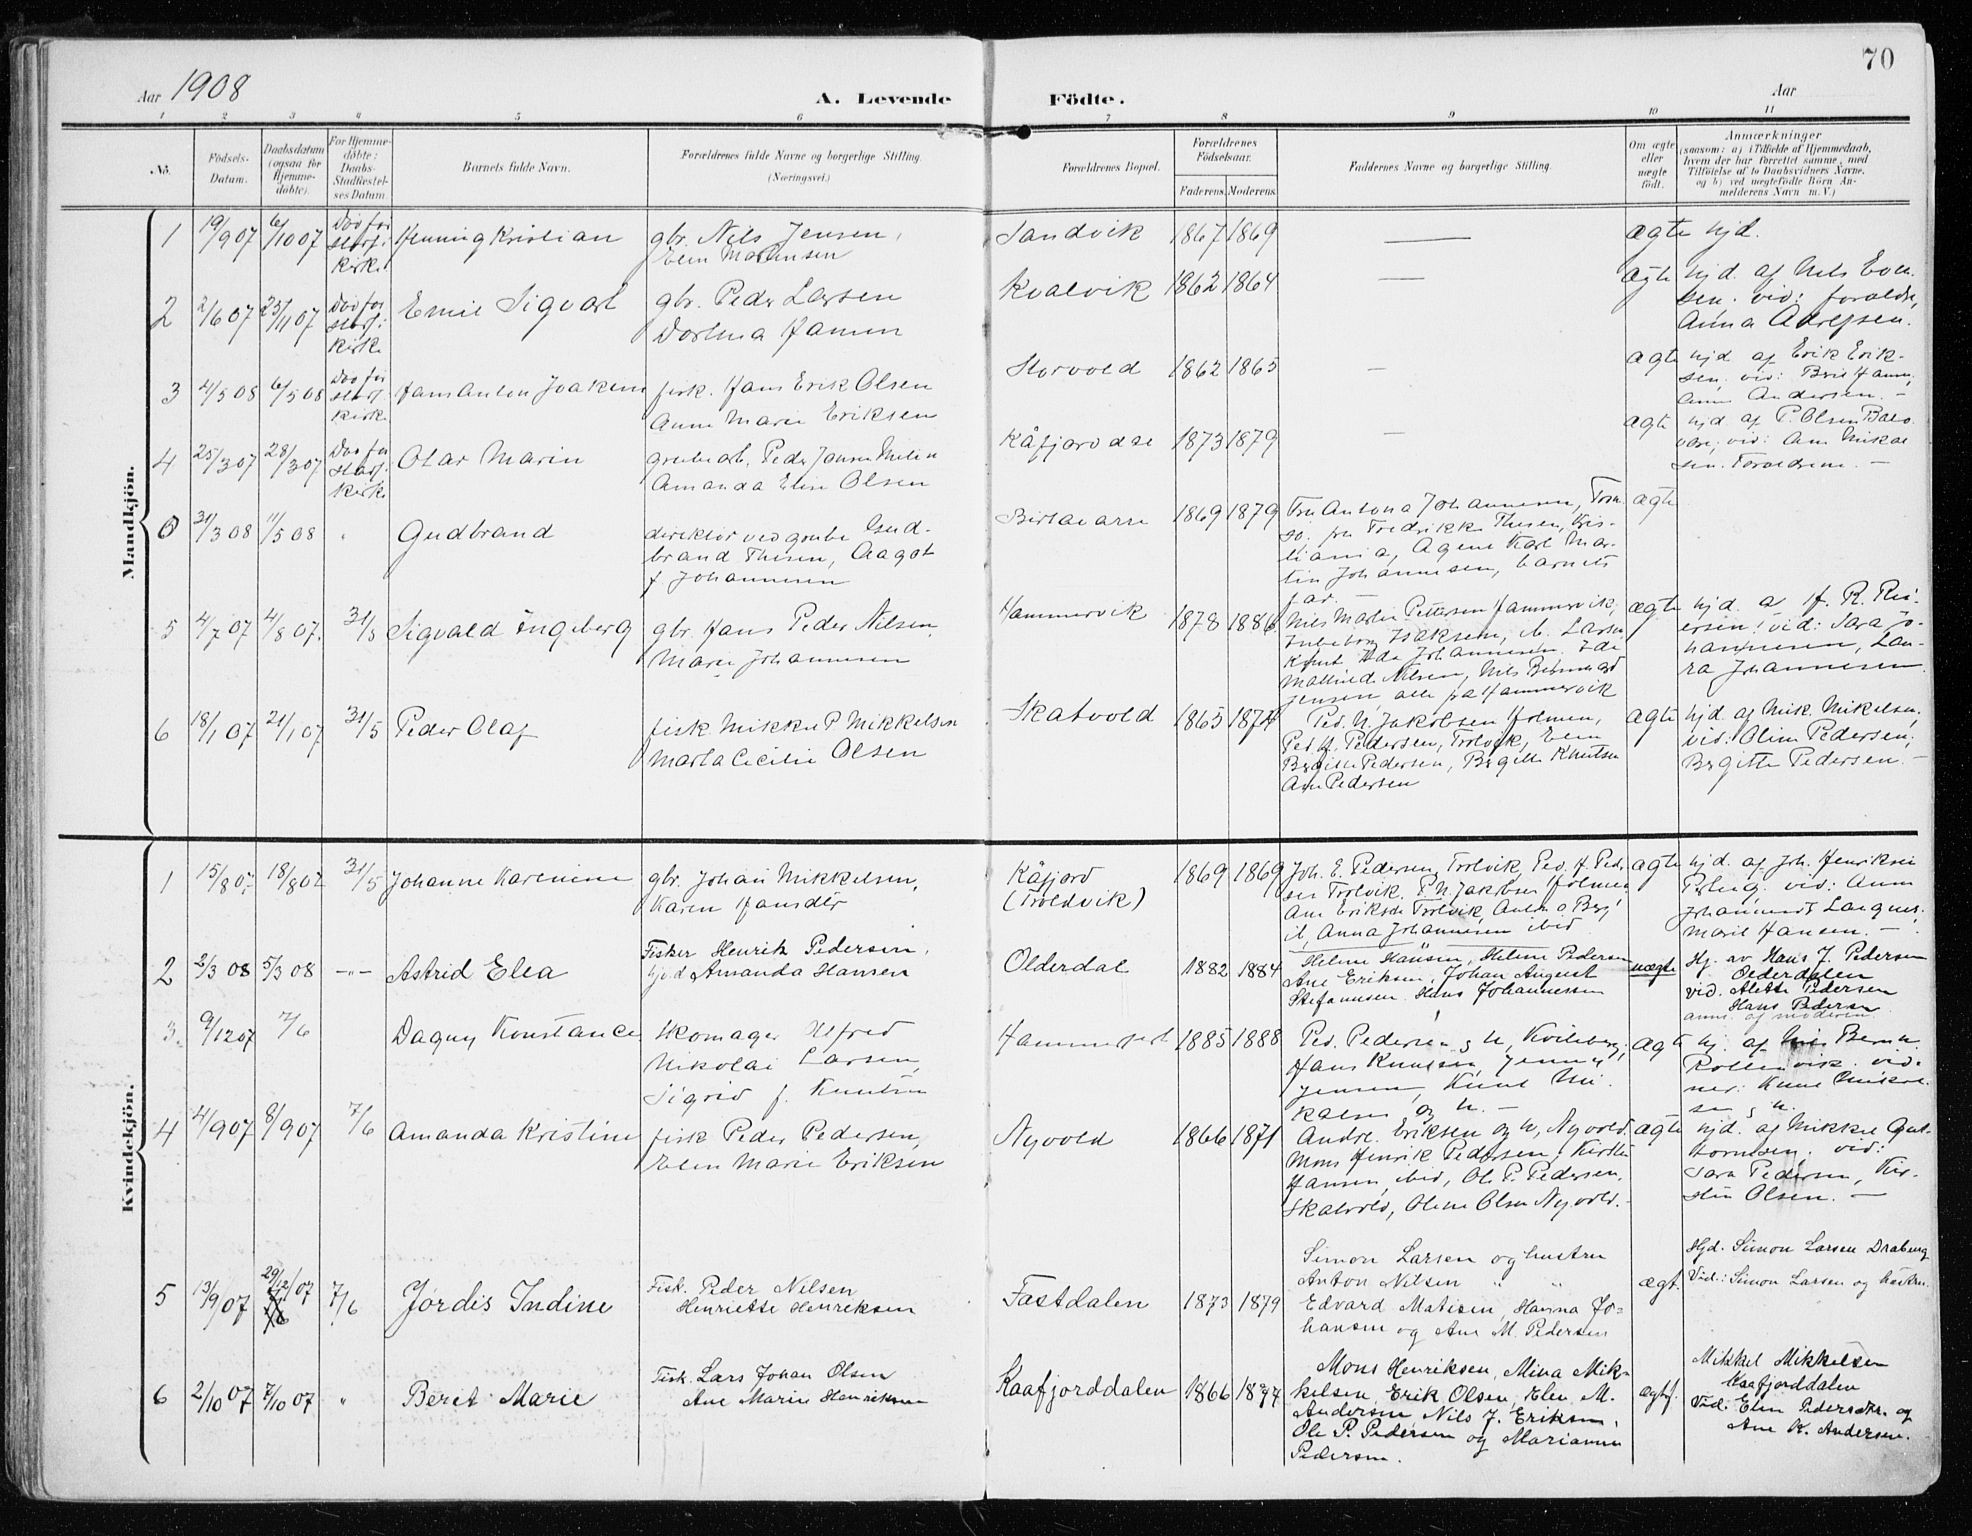 70
Aar 1908
A. Levende
Födte.
Aar
1 2 3 4 5 6 7 8 9 10 11
No.
Födsels-
Datum.
Daabsdatum
(ogsaa for
Hjemme-
döbte).
For Hjemme-
döbte:
Daabs-
Stadfæstel-
ses Datum.
Barnets fulde Navn.
Forældrenes fulde Navne og borgerlige Stilling.
(Næringsvei.)
Forældrenes Bopæl.
Forældrenes
Födselsaar.
Faderens. Moderens.
Faddernes Navne og borgerlige Stilling.
Om ægte
eller
uægte
födt.
Anmærkninger
(saasom: a) i Tilfælde af Hjemmedaab,
hvem der har forrettet samme, med
Tilföielse af to Daabsvidners Navne,
og b) ved uægtefödte Börn An-
melderens Navn m. V.)
Mandkjön.
1 19/9 07 6/10 07 Död før
stadf:
kirke Henning Kristian
gbr. Nils Jensen,
Elen Martinsen
Sandvik 1867 1869 — ægte hjd.
2 2/6 07 23/11 07 Død før
stadf:
kirke Emil Sigvart
gbr. Peder Larsen
Dorthea Hansen
Kvalvik 1862 1864 — ægte hjd. af Nils Even
sen. vid: foraldre,
Anna Adrefsen.
3 4/5 08 6/5 08 Død før
stadf:
kirke Hans Anton Joakim
fisk. Hans Erik Olsen
Anne Marie Eriksen
Storvold 1862 1865 — ægte hjd. af Erik Erik-
sen, vid: Berit Hansen,
Anne Andersen. —
4 25/3 07 28/3 07 Død før
stadf:
kirke Olar Marin
grubearb. Peder Jensen
Amanda Elise Olsen
Kåfjord 1873 1879 — ægte hjd af P. Olsen
vid: Ane Mikal
sen. Forældrene. —
0 31/3 08 11/5 08 " Gudbrand
direktør ved grube Gud-
brand Thesen, Aagot
f. Johannesen
Birtavarre 1869 1879 Fru Antona Johannesen, Trom
sø. fru Fredrikke Thesen, Kris-
tiania, Agent Karl Mar-
tin Johannesen, barnets
far. — ægte
5 4/7 07 4/8 07. 31/5 Sigvald Ingeberg
gbr. Hans Peder Nilsen,
Marie Johannesen
Hammervik 1878 1886 Nils Martin Pettersen Hammervik,
Ingeborg Isaksen, M. Larsen
Knut Ida Johannesen. Ida
Mathilde Nilsen, Nils Bernhard
Jensen, alle på Hammervik ægte hjd. af H. R.
ersen! vid: Sara Jo-
hannesen, Lau-
ra Johannesen.
6 18/1 07 21/1 07 31/5 Peder Olaf
fisk Mikkel P Mikkelsen
Marta Cecilie Olsen
Skatvold 1865 1874 Ped. N. Jakobsen Holmen,
Ped. H. Pedersen, Trolvik, Elen
Birgitte Pedersen, Birgitte Knutsen
Ane Pedersen ægte hjd. af Mik. Mikelsen,
vid: Oline Pedersen,
Birgitte Pedersen. —
Kvindekjön.
1 15/8 07. 18/8 07 31/5 Johanne Karenine
gbr. Johan Mikkelsen,
Karen Hansdtr
Kåfjord
(Troldvik) 1869 1869 Joh. E. Pedersen Trolvik, Ped. H. Peder
sen Trolvik. P. N. Jakobsen Holmen
Ane Eriksen Trolvik, Andr. o Berj
it, Anna Johannesen ibid ægte hjd. af Joh. Henriksen
vid: Anne
Johannesdt
Marit Hansen. —
2 2/3 08 5/3 08 —"— Astrid Elea
Fisker Henrik Pedersen,
hjd Amanda Hansen
Olderdal 1882 1884 Helene Hansen, Helene Pedersen
Ane Eriksen, Johan August
Stefanusen. Hans Johannessen uægte Hj. av Hans J. Pedersen
Olderdalen
vid. Alette Pedersen
Hans Pedersen
anm. af moderen
3. 9/12 07 7/6 Dagny Konstance
Skomager Alfred
Nikolai Larsen,
Sigrid f. Knutsen
Hammernes 1885 1888 Ped. Pedersen og h,
Hans Knutsen, Jenny
Jensen, Knut Mi-
kalsen og h. — ægte hj. af Nils Bernh.
Rottenvik. vid-
ner: Knut Mikal
sen og h.
4 4/9 07 8/9 07 7/6 Amanda Kristine
fisk Peder Pedersen,
Elen Marie Eriksen
Nyvold 1866 1871 Andr. Eriksen og h, Nyvold
Mons Henrik Pedersen, Kirsten
Hansen, ibid, Ole P. Pedersen,
Skatvold, Oline Olsen Nyvold. — ægte hjd. af Mikkel Gut-
tormsen. vid:
Sara Pedersen, Kir-
stin Olsen. —
5 13/9 07 29/12 07 7/6 Jørdis Indine
Fisk. Peder Nilsen
Henriette Henriksen
Fastdalen 1873 1879 Simon Larsen og hustru
Anton Nilsen " "
Edvard Matisen, Hanna Jo-
hansen og Ane M. Pedersen ægt. Hjd. Simon Larsen
Vid.: Simon Larsen og hustru.
6 2/10 07 7/10 07 " Beret Marie
Fisk. Lars Johan Olsen
Ane Marie Henriksen
Kaafjorddalen 1866 1874 Mons Henriksen, Mina Mik-
kelsen, Erik Olsen, Elen M.
Andersen, Nils J. Eriksen,
Ole P. Pedersen og Marianne
Pedersen. ægtf. Mikkel Mikkelsen
Kaafjorddalen
Vid: Elen Pedersen og
Ane K. Andersen.